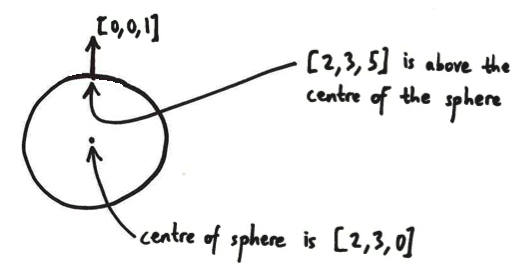 [0,0,1]
[2,3,5] is above the
centre of the sphere
centre of sphere is [2,3,0]